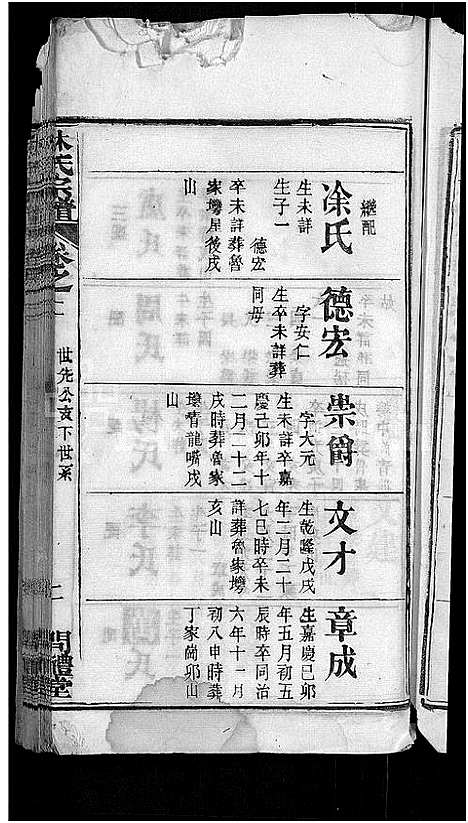 繼配
凃氏
生未詳
生子一
德宏
卒未詳葬魯
家塆屋後戌
山
德宏
字安仁
生卒未詳葬
同母
崇爵
字大元
生未詳卒嘉
慶己卯年十
二月二十二
戌時葬魯家
塆青龍嘴戌
山
文才
生乾隆戊戌
年三月二十
七巳時卒未
詳葬魯家塆
亥山
章成
生嘉慶己卯
年五月初五
辰時卒同治
六年十一月
初八申時葬
丁家崗卯山
林氏宗譜
卷之
世先公支下世系
問禮堂